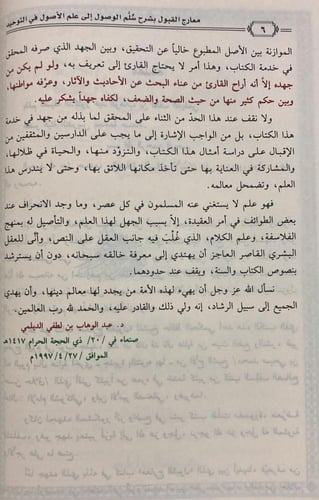 معارج القبول بشرح سُلَّم الوصول إلى علم الأصول في التوحيد
٦
الموازنة بين الأصل المطبوع خالياً عن التحقيق، وبين الجهد الذي صرفه المحقق
في خدمة الكتاب، وهذا أمر لا يحتاج القارئ إلى تعريف به، ولو لم يكن من
جهده إلا أنه أراح القارئ من عناء البحث عن الأحاديث والآثار، وعرَّفه مواطنها،
وبين حكم كثير منها من حيث الصحة والضعف، لكفاه جهداً يشكر عليه.
ولا نقف عند هذا الحدّ من الثناء على المحقق لما بذله من جهد في خدمة
هذا الكتاب، بل من الواجب الإشارة إلى ما يجب على الدارسين والمثقفين من
الإقبال على دراسة أمثال هذا الكتاب، والتزوّد منها، والحياة في ظلالها،
والمشاركة في العناية بها حتى تأخذ مكانها اللائق بها، وحتى لا يندرس هذا
العلم، وتضمحل معالمه.
فهو علم لا يستغني عنه المسلمون في كل عصر، وما وجد الانحراف عند
بعض الطوائف في أمر العقيدة، إلا بسبب الجهل لهذا العلم، والتأصيل له بمنهج
الفلاسفة، وعلم الكلام، الذي غُلِّبَ فيه جانب العقل على النّص، وأنَّى للعقل
البشري القاصر العاجز أن يهتدي إلى معرفة خالقه سبحانه، دون أن يسترشد
بنصوص الكتاب والسنة، ويقف عند حدودهما.
نسأل الله عز وجل أن يهيء لهذه الأمة من يجدد لها معالم دينها، وأن يهدي
الجميع إلى سبيل الرشاد، إنه ولي ذلك والقادر عليه، والحمد لله رب العالمين.
د. عبد الوهاب بن لطفي الديلمي
صنعاء في /٢٠/ ذي الحجة الحرام ١٤١٧هـ
الموافق /٢٧/ ٤/ ١٩٩٧م